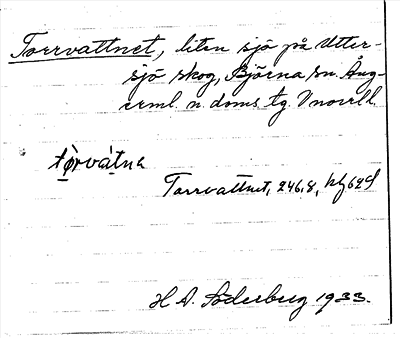 Torrvattnet, liten sjö på Utter-
sjö skog, Björna sn. Ång-
erml. n. doms. tg. Vnorrl l.
tørvátna
Torrvattnet, 246,8, kbl 62S
H A. Söderberg 1933.